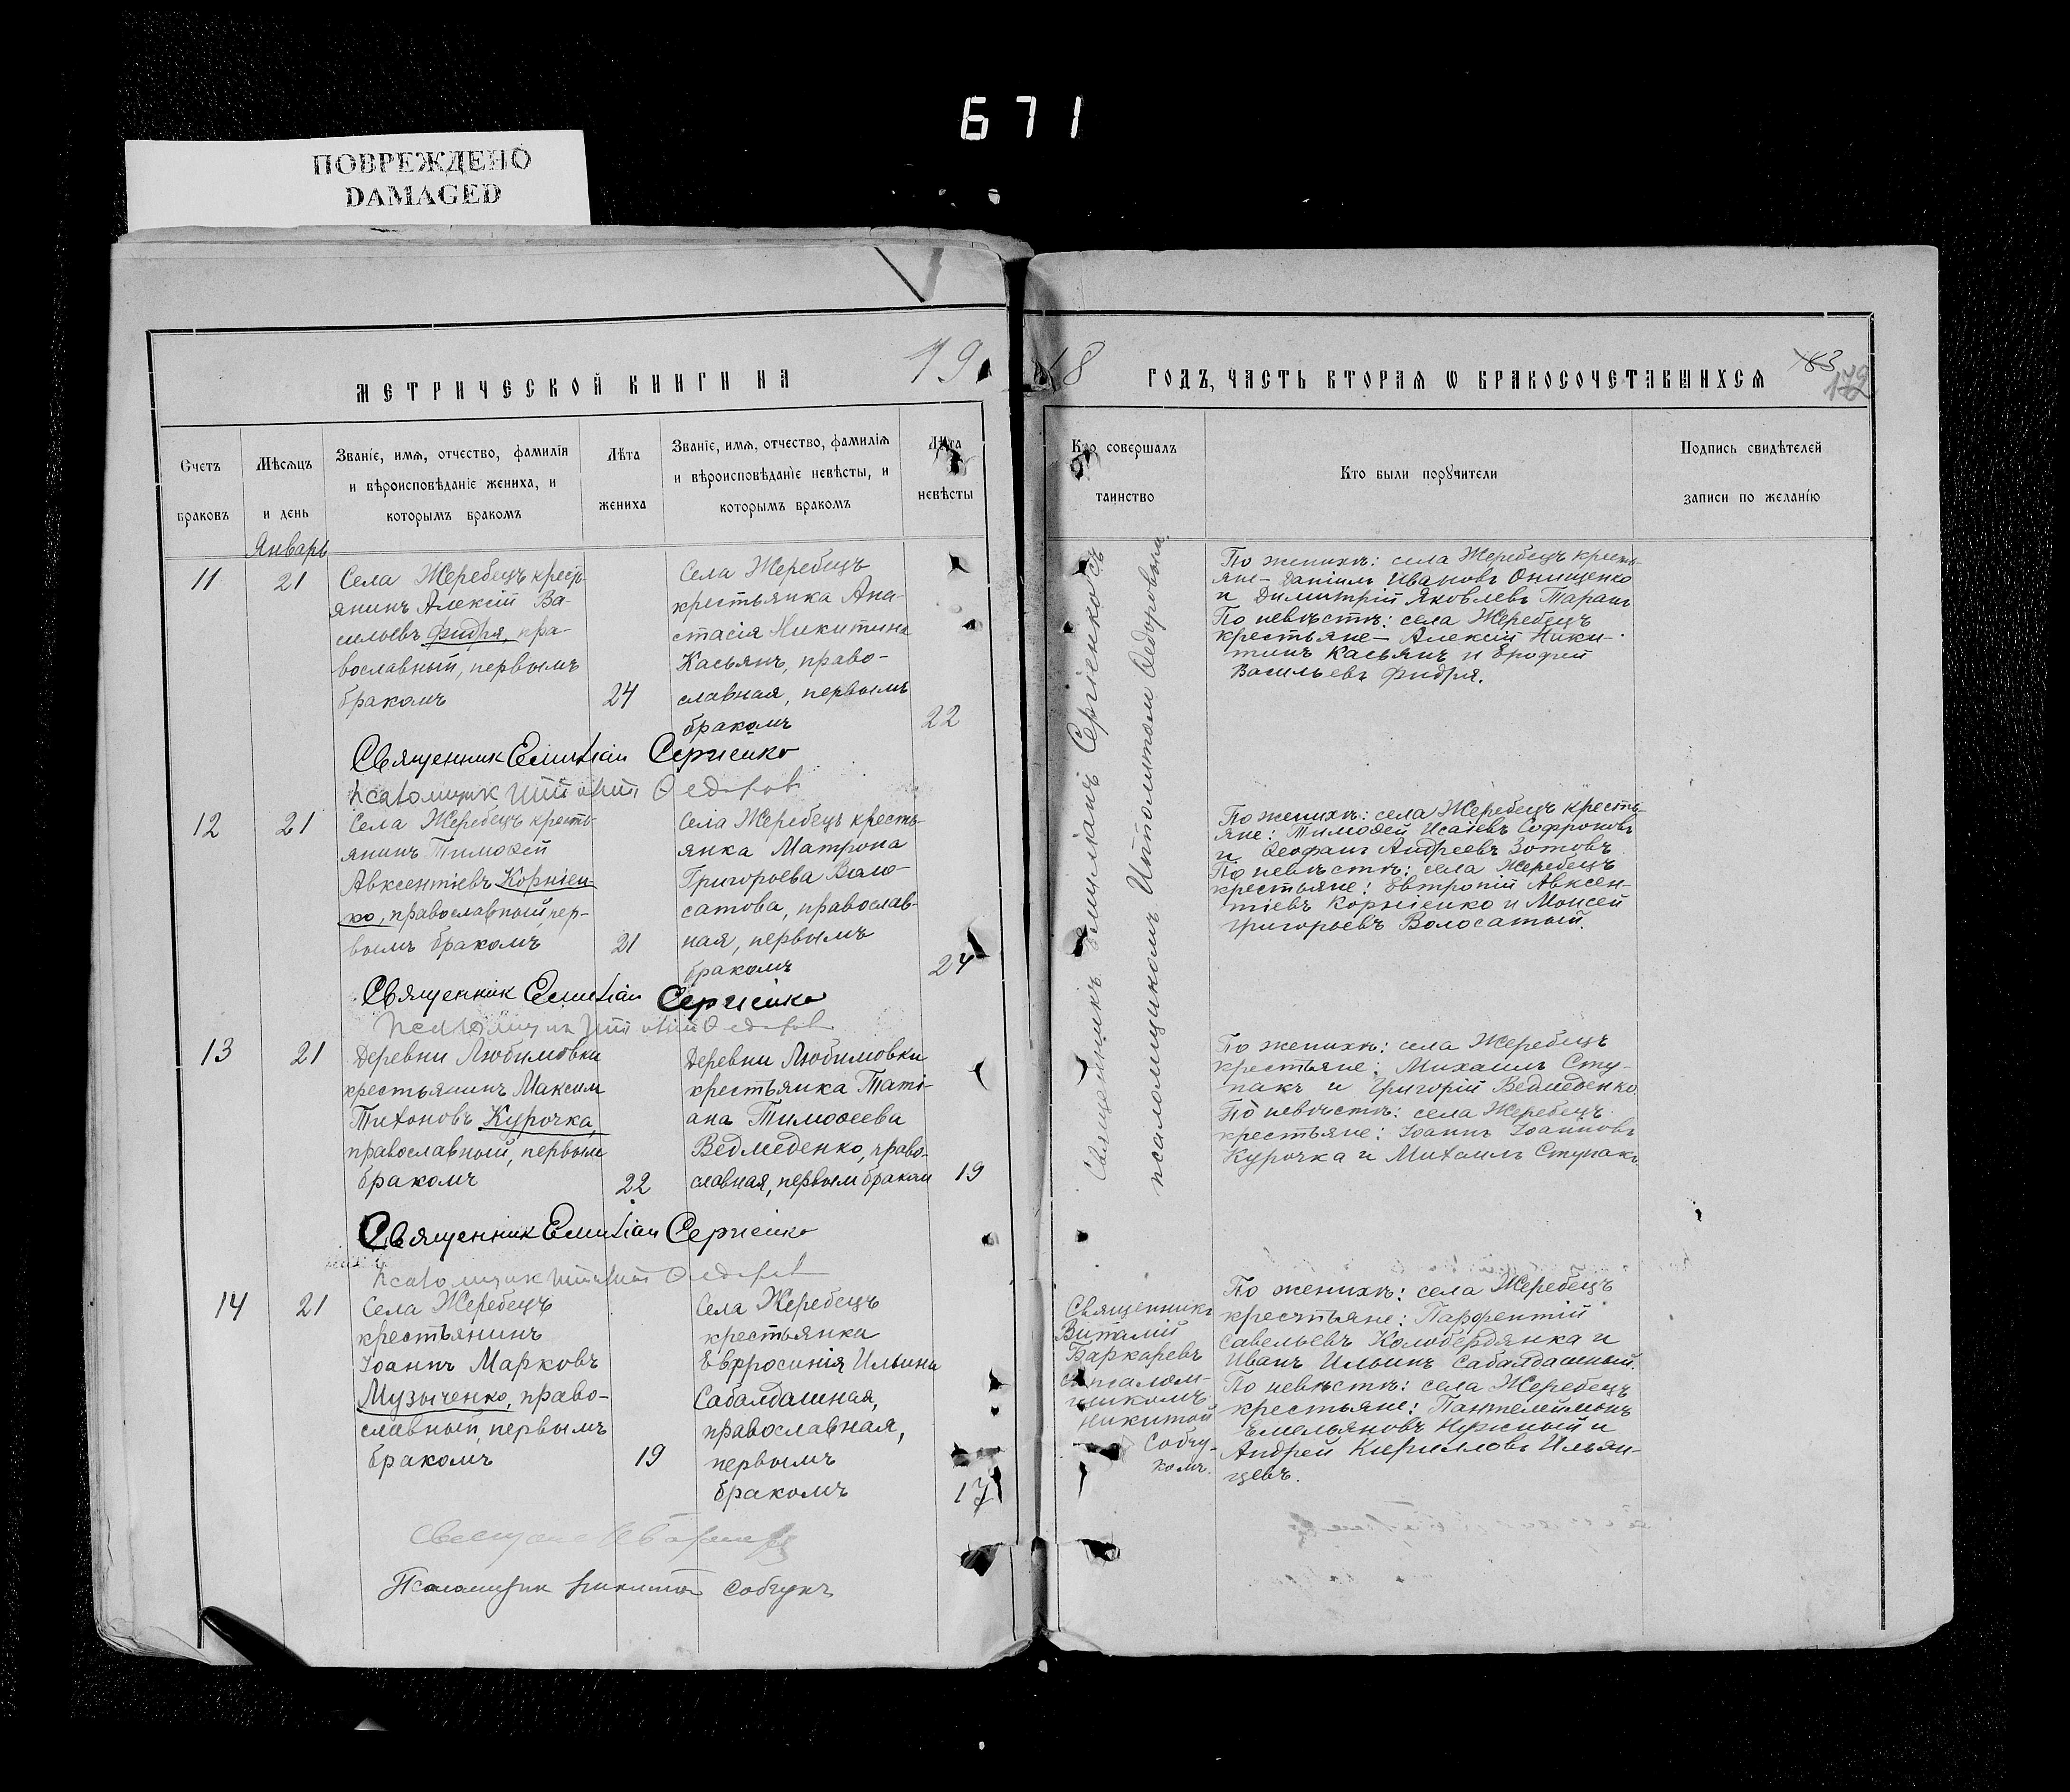 671
ПОВРЕЖДЕНО
DAMAGED
МЕТРИЧЕСКОЙ КНИГИ НА 19
18 ГОДЪ, ЧАСТЬ ВТОРАЯ Ѡ БРАКОСОЧЕТАВШИХСЯ
83
172
Счетъ браковъ
Мѣсяцъ и день
Званіе, имя, отчество, фамилія
и вѣроисповѣданіе жениха, и
которымъ бракомъ
Лѣта жениха
Званіе, имя, отчество, фамилія
и вѣроисповѣданіе невѣсты, и
которымъ бракомъ
Лѣта невѣсты
Кто совершалъ таинство
Кто были поручители
Подпись свидѣтелей
записи по желанію
Январь
11
21
Села Жеребецъ крест-
янинъ Алексій Ва-
сильевъ Фидря, пра-
вославный, первымъ
бракомъ
24
Села Жеребецъ
крестьянка Ана-
стасія Никитина
Касьянъ, право-
славная, первымъ
бракомъ
22
Священникъ Емиліанъ Сергіенко съ
псаломщикомъ Ипполитомъ Ѳедоровымъ
По женихѣ: села Жеребецъ кресть-
яне- Даніилъ Ивановъ Онищенко
и Димитрій Яковлевъ Таранъ
По невѣстѣ: села Жеребецъ
крестьяне- Алексій Ники-
тинъ Касьянъ и Ерофей
Васильевъ Фидря.
Священник Емиліан Сергіенко
псаломщик Ипполит Ѳедоров
12
21
Села Жеребецъ кресть-
янинъ Тимоѳей
Авксентіевъ Корніен-
ко, православный, пер-
вымъ бракомъ
21
Села Жеребецъ кресть-
янка Матрона
Григорьева Воло-
сатова, православ-
ная, первымъ
бракомъ
24
По женихѣ: села Жеребецъ кресть-
яне: Тимоѳей Исаіевъ Софроновъ
и Ѳеофанъ Андреевъ Зотовъ
По невѣстѣ: села Жеребецъ
крестьяне: Евтропій Авксен-
тіевъ Корніенко и Моисей
Григорьевъ Волосатый.
Священник Емиліан Сергіенко
псаломщик Ипполит Ѳедоров
13
21
Деревни Любимовки
крестьянинъ Максим
Тихоновъ Курочка,
православный, первым
бракомъ
22
Деревни Любимовки
крестьянка Таті-
ана Тимоѳеева
Ведмеденко, право-
славная, первым браком
19
По женихѣ: села Жеребецъ
крестьяне: Михаилъ Сту-
пакъ и Григорій Ведмеденко.
По невѣстѣ: села Жеребецъ
крестьяне: Іоаннъ Іоанновъ
Курочка и Михаилъ Ступакъ
Священник Емиліан Сергіенко
псаломщик Ипполит Ѳедоров
14
21
Села Жеребецъ
крестьянинъ
Іоаннъ Марковъ
Музыченко, право-
славный, первымъ
бракомъ
19
Села Жеребецъ
крестьянка
Евфросинія Ильина
Сабалдашная,
православная,
первымъ
бракомъ
17
Священникъ
Виталій
Баркаревъ
съ псалом-
щикомъ
Никитой
Собчу-
комъ.
По женихѣ: села Жеребецъ
крестьяне: Парфентій
Савельевъ Колобердянка и
Иванъ Ильинъ Сабалдашный.
По невѣстѣ: села Жеребецъ
крестьяне: Пантелеймонъ
Емельяновъ Нужный и
Андрей Кирилловъ Ильин-
цевъ.
Псаломщик Никита Собчукъ